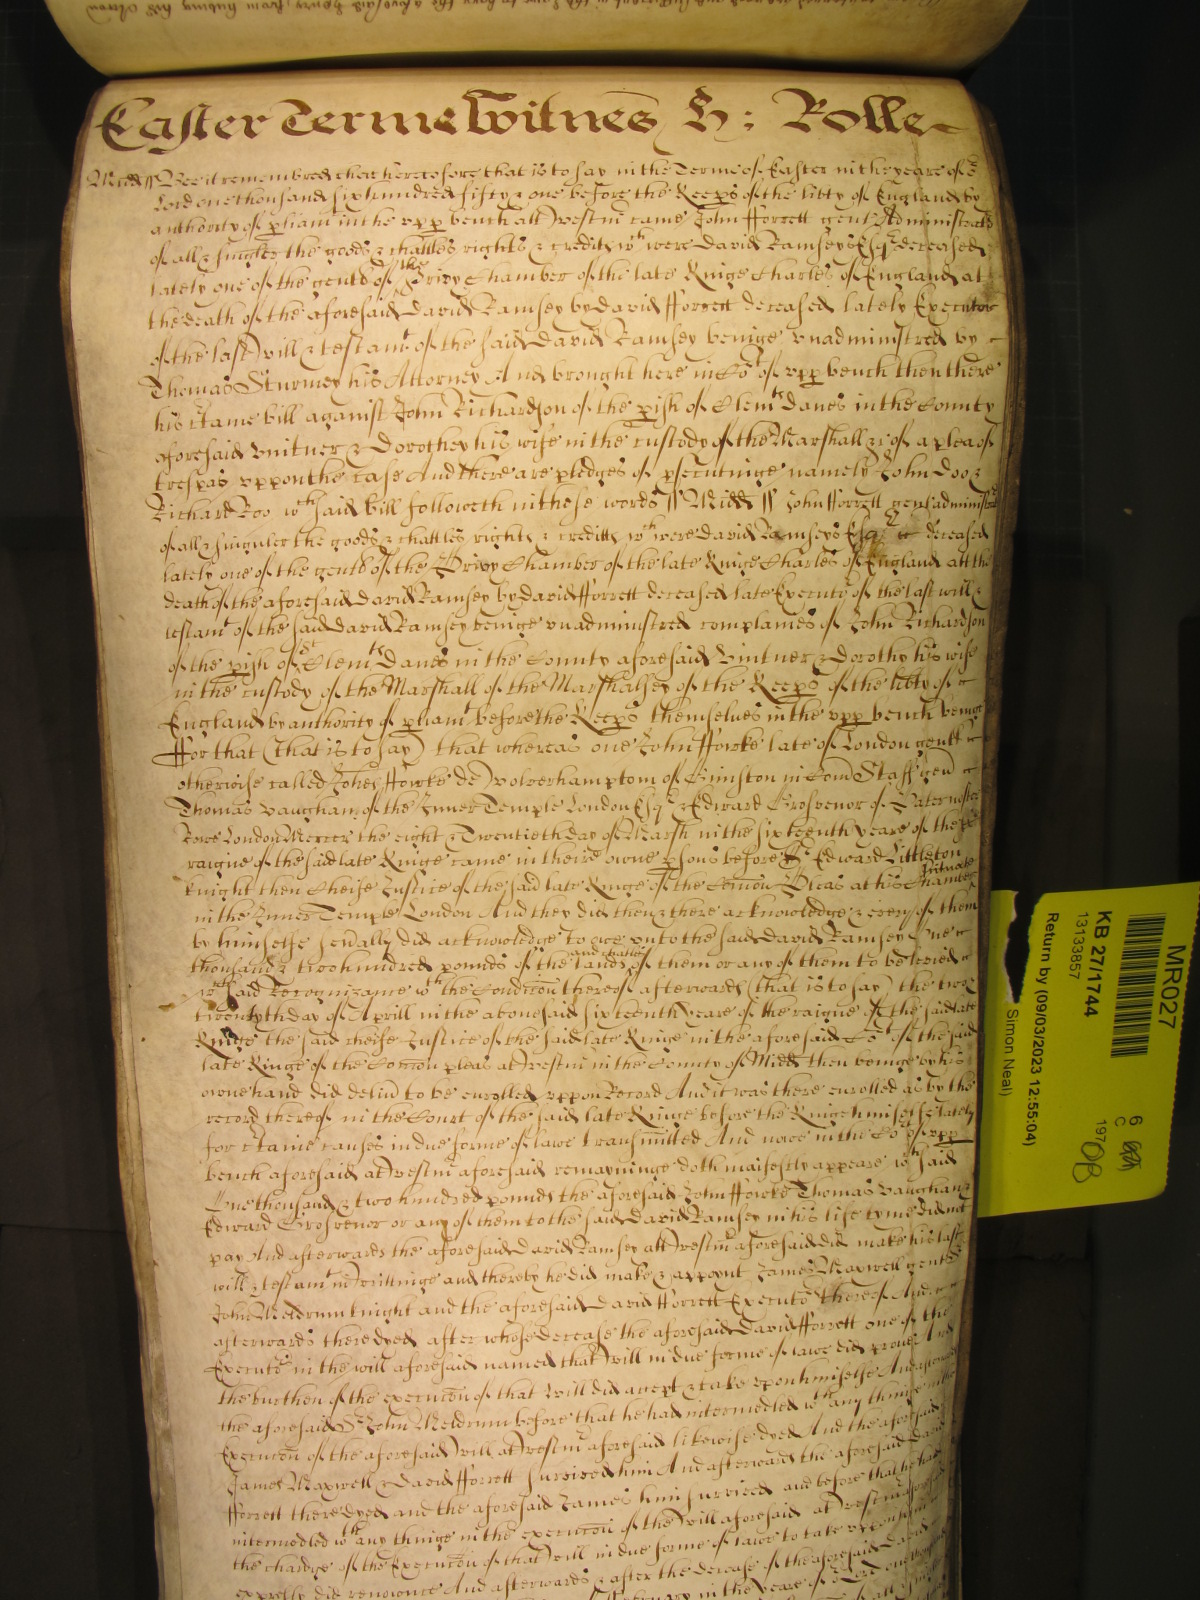 Easter Terme Witnes H: Rolle
Midd ss Bee it remembred that heretofore that is to say in the Terme of Easter in the yeare of or
Lord one thousand six hundred fifty & one before the Keeps of the libty of England by
authority of pliamt in the upp bench att Westm came John Fforrett gent Administrator
of all & singler the goods & chattles rights & credits wch were David Ramseys Esqr deceased
lately one of the gents of the Privy Chamber of the late Kinge Charles of England at
the death of the aforesaid David Ramsey by David Fforrett deceased lately Executor
of the last will & testamt of the said David Ramsey beinge unadministred by
Thomas Sturmey his Attorney And brought here in Cot of upp bench then there
his Ctaine bill against John Richardson of the pish of Clemts Danes in the County
aforesaid Vintner & Dorothey his wife in the custody of the Marshall &c of a plea of
trespas uppon the case And there are pledges of psecutinge namely John Doo &
Richard Roo wch said bill followeth in these words ss Midd ss John Fforrett gent administr
of all & singuler the goods & chattles rights & credits wch were David Ramseys Esqr deceased
lately one of the gents of the Privy Chamber of the late Kinge Charles of England att the
death of the aforesaid David Ramsey by David Fforrett deceased late Executr of the last will &
testamt of the said David Ramsey beinge unadministred complaines of John Richardson
of the pish of St Clemts Danes in the County aforesaid Vintner & Dorothy his wife
in the custody of the Marshall of the Marshallsey of the Keeps of the libty of
England by authority of pliamt before the Keeps themselves in the upp bench beinge
Ffor that (that is to say) that whereas one John Ffowke late of London gent
otherwise called Johes Ffowke de Wolverhampton of Gunston in Com Staff gen
Thomas Vaughan of the Inner Temple London Esqr & Edward Grosvenor of Paternoster
Rowe London Mercer the eight & Twentieth day of March in the sixteenth yeare of the
raigne of the said late Kinge came in theire owne psons before Sr Edward Littleton
knight then Cheife Justice of the said late Kinge of the Comon Pleas at his private Chamber
in the Inner Temple London And they did then & there acknowledge & every of them
by himselfe sevally did acknowledge to owe unto the said David Ramsey One
thousand & two hundred pounds of the lands and chattles of them or any of them to be levied
wch said Recognizance wth the Condicon thereof afterwards (that is to say) the two &
twentyth day of Aprill in the abovesaid sixteenth yeare of the raigne of the said late
Kinge the said cheife Justice of the said late Kinge in the aforesaid Cot of the said
late Kinge of the Comon pleas at Westm in the County of Midd then beinge by his
owne hand did delivr to be enrolled uppon Record And it was there enrolled as by the
record thereof in the Court of the said late Kinge before the Kinge himselfe lately
for Ctaine causes in due forme of lawe transmitted And nowe in the Cot of upp
bench aforesaid at Westm aforesaid remayninge doth maifestly appeare wch said
One thousand & two hundred pounds the aforesaid John Ffowke Thomas Vaughan &
Edward Grosvenor or any of them to the said David Ramsey in his life tyme did not
pay And afterwards the aforesaid David Ramsey att Westm aforesaid did make his last
will & testamt in writtinge and thereby he did make & appoynt James Maxwell
John Meldrum knight and the aforesaid David Fforrett Executrs thereof And
afterwards there dyed after whose decease the aforesaid David Fforrett one of the
Executrs in the will aforesaid named that will in due forme of lawe did prove And
the burthen of the execucon of that will did accept & take upon himselfe And afterwards
the aforesaid Sr John Meldrum before that he had intermedled wth any thinge in the
Execucon of the aforesaid will at Westm aforesaid likewise dyed And the aforesaid
James Maxwell & David Fforrett survived him And afterwards the aforesaid David
Fforrett there dyed and the aforesaid James him survived and before that he had
intermedled wth any thinge in the execucon of the will aforesaid at Westm
the chardge of the Execucon of that will in due forme of lawe to take uppon
expresly did renounce And afterwards & after the decease of the aforesaid David
in the yeare of or Lord one
MR027
KB 27/1744
13133857
Return by (09/03/2023 12:55:04)
Simon Neal)
6
C
1970